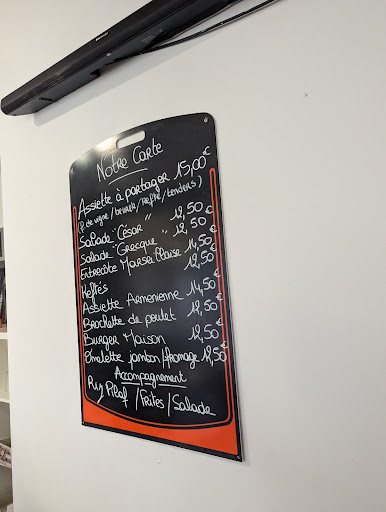 Notre Carte
Assiette à partager 15,00€
(F. de vigne / beurek / kefté / tenders)
Salade "César" 12,50€
Salade "Grecque" 12,50€
Entrecôte Marseillaise 14,50€
Keftés 12,50€
Assiette Armenienne 14,50€
Brochette de poulet 12,50€
Burger Maison 12,50€
Omelette jambon/fromage 12,50€
Accompagnement
Riz Pilaf / Frites / Salade